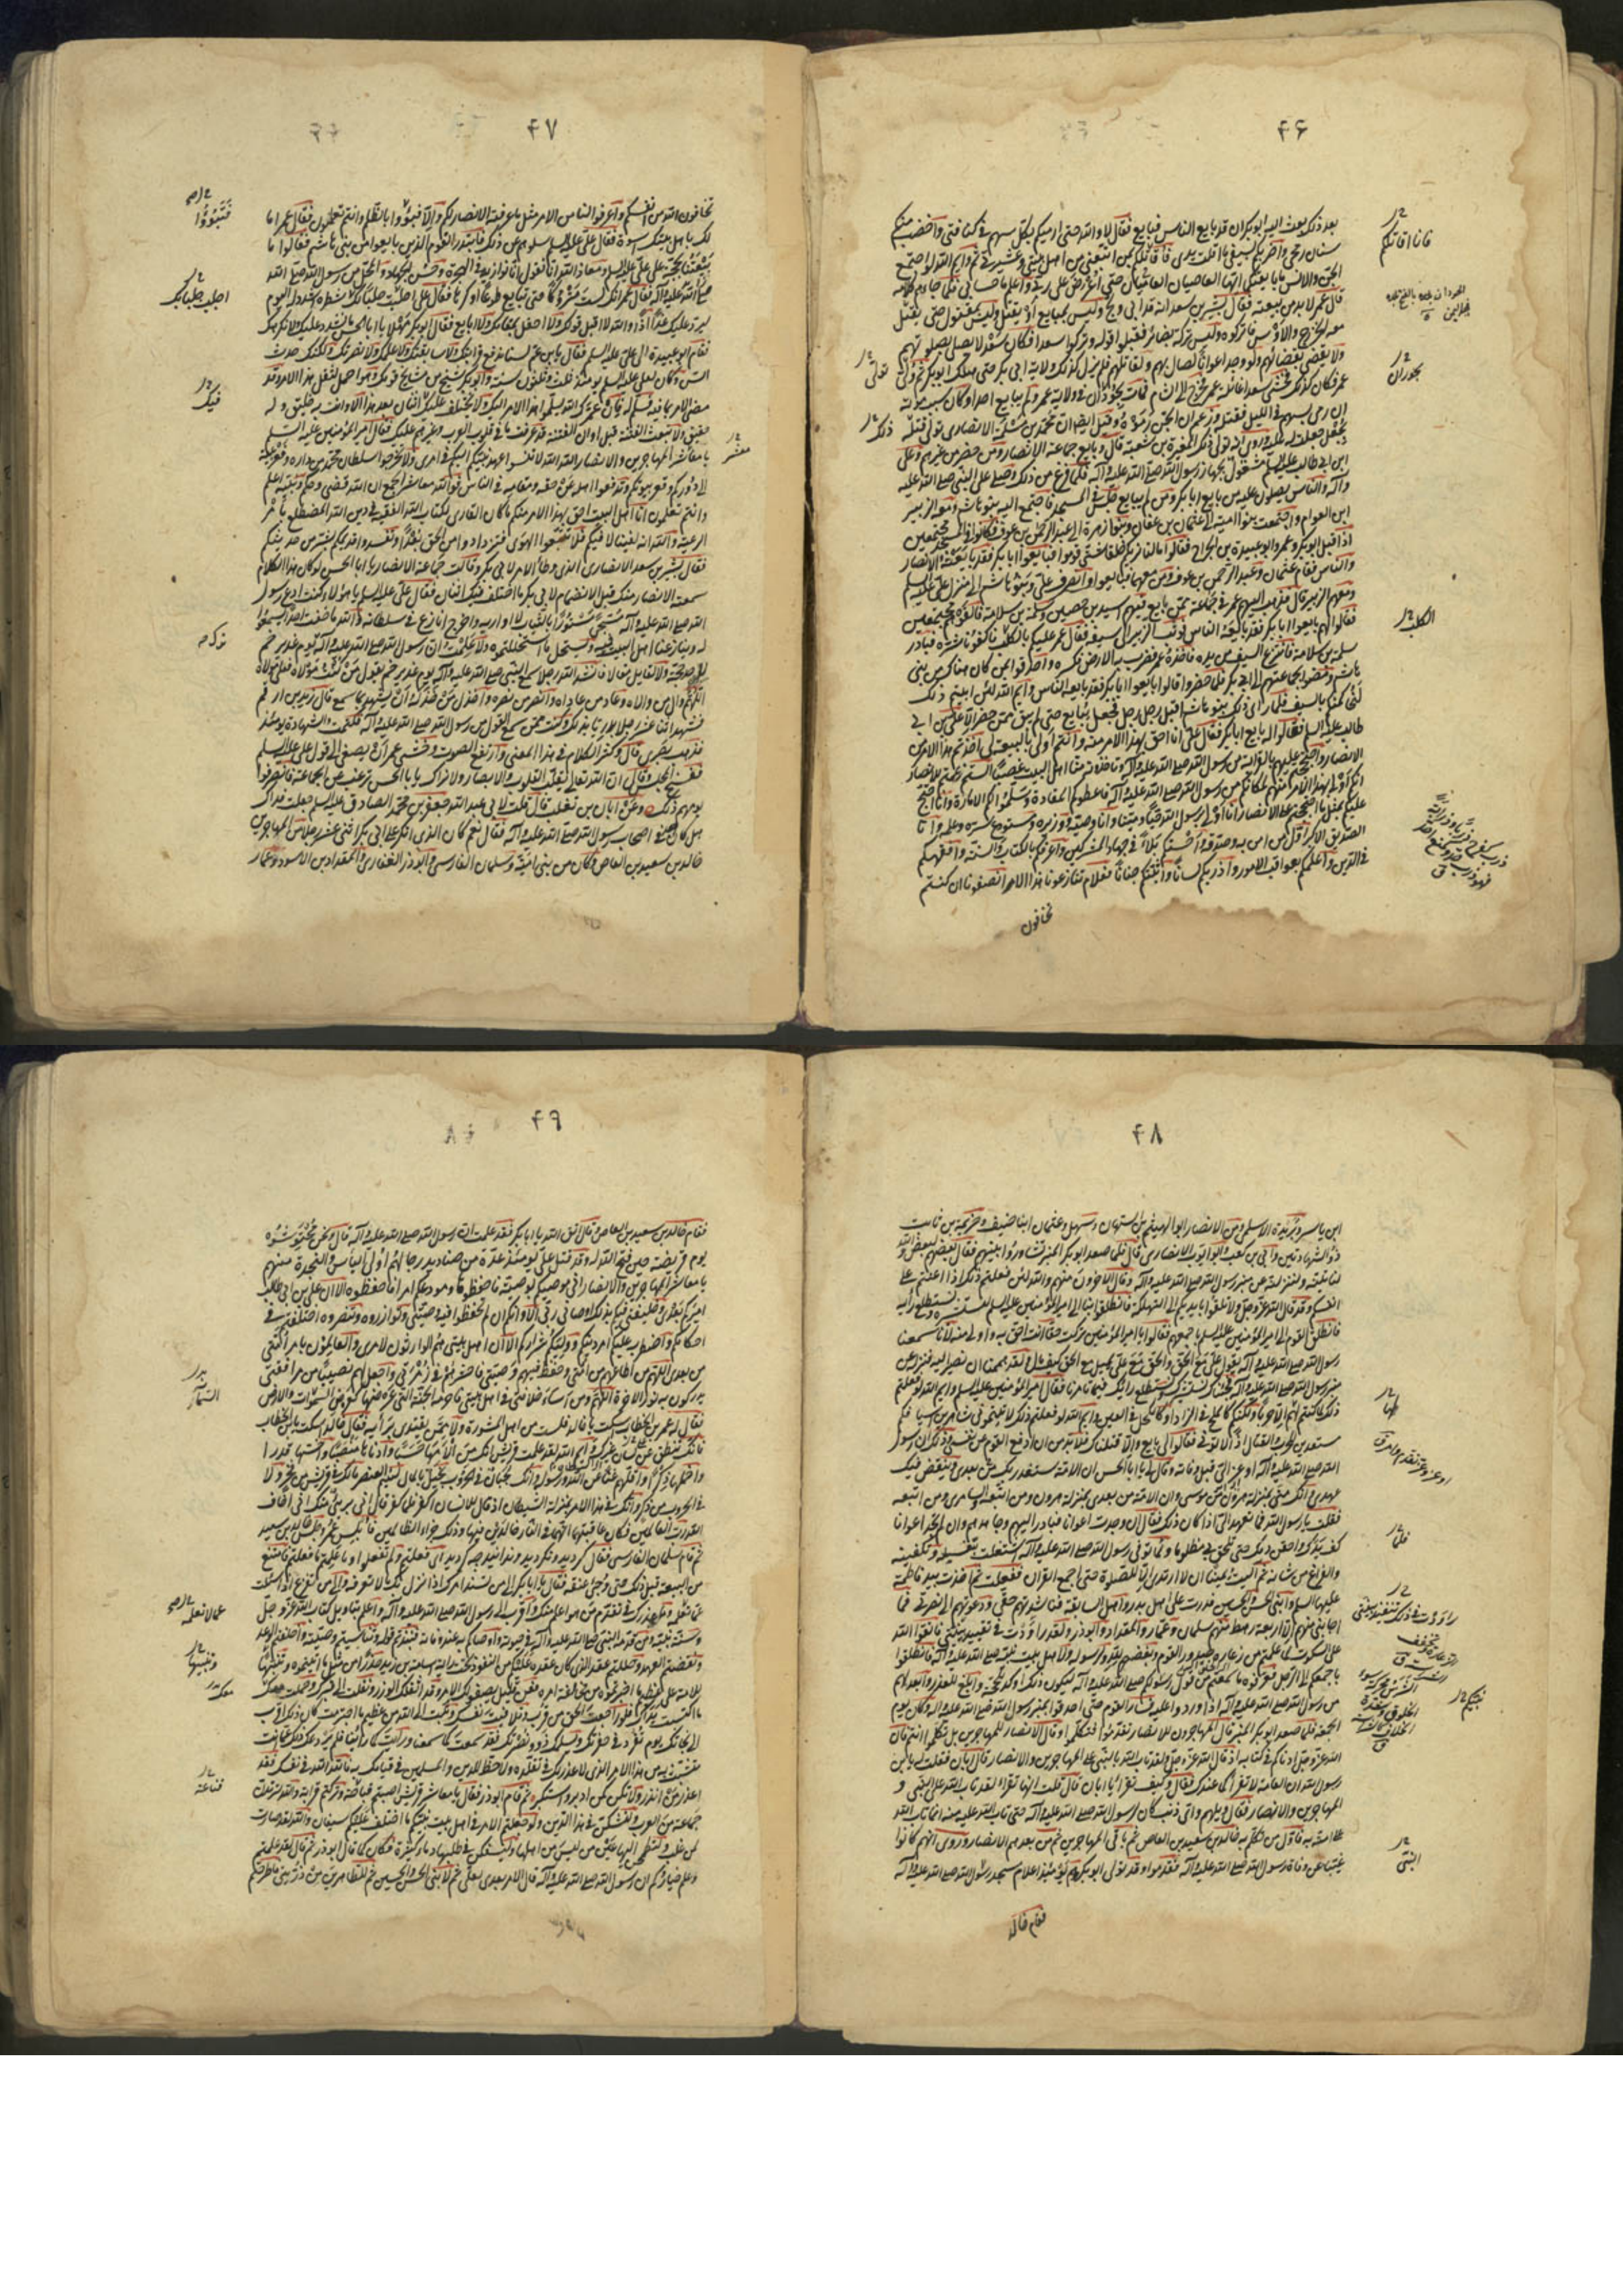 ۴۶
بعد ذلك بعث اليه ابو بكر ان قد بايع الناس فبايع فقال لا والله حتى ارميكم بكل سهم في كنانتي واخضب منكم
سنان رمحي واضربكم بسيفي ما اقلت يدي فاقاتلكم بمن اتبعني من اهل بيتي وعشيرتي ثم وايم الله لو اجتمع
الجن والانس ما بايعتكما ايها العاصيان حتى اعرض على ربي واعلم ما حسابي فلما جاءهم كلامه
قال عمر لا بد من بيعته فقال بشير بن سعد انه قد ابى ولج وليس بمبايع او يقتل وليس بمقتول حتى يقتل
معه الخزرج والاوس فاتركوه وليس تركه بضائر فقبلوا قوله وتركوا سعدا فكان سعد لا يصلي بصلوتهم
ولا يقضي بقضائهم ولو وجد اعوانا لصال بهم ولقاتلهم فلم يزل كذلك في ولاية ابي بكر حتى هلك ابو بكر ثم ولي
عمر فكان كذلك فخشي سعد غائلة عمر فخرج الى الشام فمات بحوران في ولاية عمر ولم يبايع احدا وكان سبب موته
ان رمي بسهم في الليل فقتله وزعم ان الجن رموه وقيل ايضا ان محمد بن مسلمة الانصاري تولى قتله
بجعل جعلت له عليه وروي انه تولى ذلك المغيرة بن شعبة قال وبايع جماعة الانصار ومن حضر من غيرهم وعلي
ابن ابي طالب عليه السلم مشغول بجهاز رسول الله صلى الله عليه وآله فلما فرغ من ذلك وصلى على النبي صلى الله عليه
وآله والناس يصلون عليه من بايع ابا بكر ومن لم يبايع جلس في المسجد فاجتمع اليه بنو هاشم ومعه الزبير
ابن العوام واجتمعت بنو امية الى عثمان بن عفان وبنو زهرة الى عبد الرحمن بن عوف فكانوا في المسجد مجتمعين
اذ اقبل ابو بكر وعمر وابو عبيدة بن الجراح فقالوا ما لنا نريكم حلقا شتى قوموا فبايعوا ابا بكر فقد بايعته الانصار
والناس فقام عثمان وعبد الرحمن بن عوف ومن معهما فبايعوا وانصرف علي وبنو هاشم الى منزل علي عليه السلم
ومعهم الزبير قال فذهب اليهم عمر في جماعة ممن بايع فيهم اسيد بن حصين وسلمة بن سلامة فالفوهم مجتمعين
فقالوا لهم بايعوا ابا بكر فقد بايعه الناس فوثب الزبير الى سيفه فقال عمر عليكم بالكلب فاكفونا شره فبادر
سلمة بن سلامة فانتزع السيف من يده فاخذه عمر فضرب به الارض فكسره واحدقوا بمن كان هناك من بني
هاشم ومضوا بجماعتهم الى ابي بكر فلما حضروا قالوا بايعوا ابا بكر فقد بايعه الناس وايم الله لئن ابيتم ذلك
لنحاكمنكم بالسيف فلما راى ذلك بنو هاشم اقبل رجل رجل فجعل يبايع حتى لم يبق ممن حضر الا علي بن ابي
طالب عليه السلم فقالوا له بايع ابا بكر فقال علي انا احق بهذا الامر منه وانتم اولى بالبيعة لي اخذتم هذا الامر من
الانصار واحتججتم عليهم بالقرابة من رسول الله صلى الله عليه وآله وتاخذونه منا اهل البيت غصبا الستم زعمتم للانصار
انكم اولى بهذا الامر منهم لمكانكم من رسول الله صلى الله عليه وآله فاعطوكم المقادة وسلموا لكم الامارة وانا احتج
عليكم بمثل ما احتججتم على الانصار انا اولى برسول الله حيا وميتا وانا وصيه ووزيره ومستودع سره وعلمه وانا
الصديق الاكبر اول من امن به وصدقه واحسنكم بلاء في جهاد المشركين واعرفكم بالكتاب والسنة وافقهكم
في الدين واعلمكم بعواقب الامور واذربكم لسانا واثبتكم جنانا فعلام تنازعونا هذا الامر انصفونا ان كنتم
تخافون
فانا اقاتلكم
بحوران
تولى
ذلك
الكلب
۴۷
تخافون الله من انفسكم واعرفوا لنا من الامر مثل ما عرفته الانصار لكم والا فبوؤا بالظلم وانتم تعلمون فقال عمر اما
لك باهل بيتك اسوة فقال علي عليه السلم سلوهم عن ذلك فابتدر القوم الذين بايعوا من بني هاشم فقالوا ما
بيعتنا بحجة على علي عليه السلم ومعاذ الله ان نقول انا نوازيه في الهجرة وحسن الجهاد والمحل من رسول الله صلى الله
عليه وآله فقال عمر انك لست متروكا حتى تبايع طوعا او كرها فقال علي احلب حلبا لك شطره اشدد له اليوم
ليرد عليك غدا اذا والله لا اقبل قولك ولا احفل بمقامك ولا ابايع فقال ابو بكر مهلا يا ابا الحسن ما نشدد عليك ولا نكرهك
فقام ابو عبيدة الى علي عليه السلم فقال يا بن عم لسنا ندفع قرابتك ولا سابقتك ولا علمك ولا نصرتك ولكنك حدث
السن وكان لعلي عليه السلم يومئذ ثلث وثلثون سنة وابو بكر شيخ من مشايخ قومك وهو احمل لثقل هذا الامر وقد
مضى الامر بما فيه فسلم له فان عمرك الله يسلموا هذا الامر اليك ولا يختلف عليك اثنان بعد هذا الا وانت به خليق وله
حقيق ولا تبعث الفتنة قبل اوان الفتنة قد عرفت ما في قلوب العرب وغيرهم عليك فقال امير المؤمنين عليه السلم
يا معاشر المهاجرين والانصار الله الله لا تنسوا عهد نبيكم اليكم في امري ولا تخرجوا سلطان محمد من داره وقعر بيته
الى دوركم وقعر بيوتكم وتدفعوا اهله عن حقه ومقامه في الناس فوالله معاشر الجمع ان الله قضى وحكم ونبيه اعلم
وانتم تعلمون انا اهل البيت احق بهذا الامر منكم ما كان القاري لكتاب الله الفقيه في دين الله المضطلع بامر
الرعية والله انه لفينا لا فيكم فلا تتبعوا الهوى فتزدادوا من الحق بعدا وتفسدوا قديمكم بشر من حديثكم
فقال بشير بن سعد الانصاري الذي وطأ الامر لابي بكر وقالت جماعة الانصار يا ابا الحسن لو كان هذا الكلام
سمعته الانصار منك قبل الانضمام لابي بكر ما اختلف فيك اثنان فقال علي عليه السلم يا هؤلاء اكنت ادع رسول
الله صلى الله عليه وآله مسجى لا اواريه واخرج انازع في سلطانه والله ما خفت احدا يسمو
له وينازعنا اهل البيت فيه ويستحل ما استحللتموه ولا علمت ان رسول الله صلى الله عليه وآله ترك يوم غدير خم
لاحد حجة ولا لقائل مقالا فانشد الله رجلا سمع النبي صلى الله عليه وآله يوم غدير خم يقول من كنت مولاه فعلي مولاه
اللهم وال من والاه وعاد من عاداه وانصر من نصره واخذل من خذله ان يشهد بما سمع قال زيد بن ارقم
فشهد اثنا عشر رجلا بدريا بذلك وكنت ممن سمع القول من رسول الله صلى الله عليه وآله فكتمت الشهادة يومئذ
فذهب بصري قال وكثر الكلام في هذا المعنى وارتفع الصوت وخشي عمر ان يصغى الى قول علي عليه السلم
ففسخ المجلس وقال ان الله تعالى يقلب القلوب والابصار ولا تزال يا ابا الحسن ترغب عن الجماعة فانصرفوا
يومهم ذلك وعن ابان بن تغلب قال قلت لابي عبد الله جعفر بن محمد الصادق عليه السلم جعلت فداك
هل كان احد في اصحاب رسول الله صلى الله عليه وآله فقال نعم كان الذي انكر على ابي بكر اثني عشر رجلا من المهاجرين
خالد بن سعيد بن العاص وكان من بني امية وسلمان الفارسي وابو ذر الغفاري والمقداد بن الاسود وعمار
فتبوؤا
احلب حلبا لك
فيك
معشر
ترك
۴۸
ابن ياسر وبريدة الاسلمي ومن الانصار ابو الهيثم بن التيهان وسهل وعثمان ابنا حنيف وخزيمة بن ثابت
ذو الشهادتين وابي بن كعب وابو ايوب الانصاري قال فلما صعد ابو بكر المنبر تشاوروا بينهم فقال بعضهم لبعض والله
لناتينه ولننزلنه عن منبر رسول الله صلى الله عليه وآله وقال الاخرون منهم والله لئن فعلتم ذلك اذا اعنتم على
انفسكم وقد قال الله عز وجل ولا تلقوا بايديكم الى التهلكة فانطلقوا بنا الى امير المؤمنين عليه السلم لنستشيره ونستطلع رايه
فانطلق القوم الى امير المؤمنين عليه السلم باجمعهم فقالوا يا امير المؤمنين تركت حقا انت احق به واولى منه لانا سمعنا
رسول الله صلى الله عليه وآله يقول علي مع الحق والحق مع علي يميل مع الحق كيف مال ولقد هممنا ان نصير اليه فننزله عن
منبر رسول الله صلى الله عليه وآله فجئناك نستشيرك ونستطلع رايك فيما تامرنا فقال امير المؤمنين عليه السلم وايم الله لو فعلتم
ذلك لما كنتم لهم الا حربا ولكنكم كالملح في الزاد وكالكحل في العين وايم الله لو فعلتم ذلك لاتيتموني شاهرين اسيافكم
مستعدين للحرب والقتال اذا لاتوني فقالوا لي بايع والا قتلناك فلا بد من ان ادفع القوم عن نفسي وذلك ان رسول
الله صلى الله عليه وآله اوعز الي قبل وفاته وقال لي يا ابا الحسن ان الامة ستغدر بك من بعدي وتنقض فيك
عهدي وانك مني بمنزلة هرون من موسى وان الامة من بعدي بمنزلة هرون ومن اتبعه والسامري ومن اتبعه
فقلت يا رسول الله فما تعهد الي اذا كان ذلك فقال ان وجدت اعوانا فبادر اليهم وجاهدهم وان لم تجد اعوانا
كف يدك واحقن دمك حتى تلحق بي مظلوما ولما توفي رسول الله صلى الله عليه وآله اشتغلت بتغسيله وتكفينه
والفراغ من شانه ثم آليت يمينا ان لا ارتدي الا للصلوة حتى اجمع القران ففعلت ثم اخذت بيد فاطمة
عليها السلم وابني الحسن والحسين فدرت على اهل بدر واهل السابقة فناشدتهم حقي ودعوتهم الى نصرتي فما
اجابني منهم الا اربعة رهط منهم سلمان وعمار والمقداد وابو ذر ولقد راودت في تقييد بينتي فاتقوا الله
على السكوت لما علمتم من وغر صدور القوم وبغضهم لله ولرسوله ولاهل بيت نبيه صلى الله عليه وآله فانطلقوا
باجمعكم الى الرجل فعرفوه ما سمعتم من قول رسولكم صلى الله عليه وآله ليكون ذلك اوكد للحجة وابلغ للعذر وابعد لهم
من رسول الله صلى الله عليه وآله اذا وردوا عليه فسار القوم حتى احدقوا بمنبر رسول الله صلى الله عليه وآله وكان يوم
الجمعة فلما صعد ابو بكر المنبر قال المهاجرون للانصار تقدموا فتكلموا وقال الانصار للمهاجرين بل تكلموا انتم فان
الله عز وجل ادناكم في كتابه اذ قال الله عز وجل لقد تاب الله بالنبي على المهاجرين والانصار قال ابان فقلت له يا بن
رسول الله ان العامة لا تقرأ كما عندك فقال وكيف تقرأ يا ابان قال قلت انها تقرأ لقد تاب الله على النبي و
المهاجرين والانصار فقال ويلهم واي ذنب كان لرسول الله صلى الله عليه وآله حتى تاب الله عليه منه انما تاب الله
على امته به فاول من تكلم به خالد بن سعيد بن العاص ثم باقي المهاجرين ثم من بعدهم الانصار وروي انهم كانوا
غيبا عن وفاة رسول الله صلى الله عليه وآله فقدموا وقد تولى ابو بكر وهم يومئذ اعلام مسجد رسول الله صلى الله عليه وآله
فقام خالد
النبي
۴۹
فقام خالد بن سعيد بن العاص وقال اتق الله يا ابا بكر فقد علمت ان رسول الله صلى الله عليه وآله قال ونحن محتوشوه
يوم قريظة حين فتح الله له وقد قتل علي يومئذ عدة من صناديد رجالهم اولي الباس والنجدة منهم
يا معاشر المهاجرين والانصار اني موصيكم بوصية فاحفظوها ومودعكم امرا فاحفظوه الا ان علي بن ابي طالب
اميركم بعدي وخليفتي فيكم بذلك اوصاني ربي الا وانكم ان لم تحفظوا فيه وصيتي وتوازروه وتنصروه اختلفتم في
احكامكم واضطرب عليكم امر دينكم ووليكم شراركم الا ان اهل بيتي هم الوارثون لامري والعالمون بامر امتي
من بعدي اللهم من اطاعهم من امتي وحفظ فيهم وصيتي فاحشرهم في زمرتي واجعل لهم نصيبا من مرافقتي
يدركون به نور الاخرة اللهم ومن اساء خلافتي في اهل بيتي فاحرمه الجنة التي عرضها كعرض السموات والارض
فقال له عمر بن الخطاب اسكت يا خالد فلست من اهل المشورة ولا ممن يقتدى برأيه فقال خالد اسكت يا بن الخطاب
فانك تنطق عن لسان غيرك وايم الله لقد علمت قريش انك من الأمها حسبا وادناها منصبا واخسها قدرا
واخملها ذكرا واقلهم غناء عن الله ورسوله وانك لجبان في الحروب بخيل بالمال لئيم العنصر ما لك في قريش من فخر ولا
في الحروب من ذكر وانك في هذا الامر بمنزلة الشيطان اذ قال للانسان اكفر فلما كفر قال اني بريئ منك اني اخاف
الله رب العالمين فكان عاقبتهما انهما في النار خالدين فيها وذلك جزاء الظالمين فابلس عمر وجلس خالد بن سعيد
ثم قام سلمان الفارسي فقال كرديد ونكرديد وندانيد چه كرديد اي فعلتم ولم تفعلوا وما علمتم ما فعلتم فامتنع
من البيعة قبل ذلك حتى وجئ عنقه فقال يا ابا بكر الى من تسند امرك اذا نزل بك ما لا تعرفه والى من تفزع اذا سئلت
عما لا تعلمه وما عذرك في تقدم من هو اعلم منك واقرب الى رسول الله صلى الله عليه وآله واعلم بتاويل كتاب الله عز وجل
وسنة نبيه ومن قدمه النبي صلى الله عليه وآله في حيوته واوصاكم به عند وفاته فنبذتم قوله وتناسيتم وصيته واخلفتم الوعد
ونقضتم العهد وحللتم العقد الذي كان عقده عليكم من النفوذ تحت راية اسامة بن زيد حذرا من مثل ما اتيتموه وتنبيها
للامة على عظيم ما اجترحتموه من مخالفة امره فعن قليل يصفو لك الامر وقد اثقلك الوزر ونقلت الى قبرك وحملت معك
ما اكتسبت يداك فلو راجعت الحق من قرب وتلافيت نفسك وتبت الى الله من عظيم ما اجترمت كان ذلك اقرب
الى نجاتك يوم تفرد في حفرتك ويسلمك ذوو نصرتك فقد سمعت كما سمعنا ورايت كما راينا فلم يردعك ذلك عما انت
متشبث به من هذا الامر الذي لا عذر لك في تقلده ولا حظ للدين والمسلمين في قيامك به فالله الله في نفسك فقد
اعذر من انذر ولا تكن كمن ادبر واستكبر ثم قام ابو ذر فقال يا معاشر قريش اصبتم قباحة وتركتم قرابة والله لترتدن
جماعة من العرب ولتشكن في هذا الدين ولو جعلتم الامر في اهل بيت نبيكم ما اختلف عليكم سيفان والله لقد صارت
لمن غلب ولتطمحن اليها عين من ليس من اهلها وليسفكن في طلبها دماء كثيرة فكان كما قال ابو ذر ثم قال لقد علمتم
وعلم خياركم ان رسول الله صلى الله عليه وآله قال الامر بعدي لعلي ثم لابني الحسن والحسين ثم للطاهرين من ذريتي فاطرحتم
عما لا تعلمه
وتنبيها
قناعة